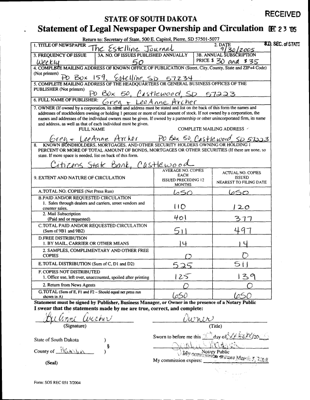 RECEIVED
STATE OF SOUTH DAKOTA
Statement of Legal Newspaper Ownership and Circulation DEC 23 '05
Return to: Secretary of State, 500 E. Capitol, Pierre, SD 57501-5077
S.D. SEC. of STATE
1. TITLE OF NEWSPAPER The Estelline Journal
2. DATE 9/30/2005
3. FREQUENCY OF ISSUE Weekly
3A. NO. OF ISSUES PUBLISHED ANNUALLY 50
3B. ANNUAL SUBSCRIPTION PRICE $ 30 and $35
4. COMPLETE MAILING ADDRESS OF KNOWN OFFICE OF PUBLICATION (Street, City, County, State and ZIP+4 Code) (Not printers)
PO Box 159, Estelline SD 57234
5. COMPLETE MAILING ADDRESS OF THE HEADQUARTERS OR GENERAL BUSINESS OFFICES OF THE PUBLISHER (Not printer)
PO Box 50, Castlewood, SD 57223
6. FULL NAME OF PUBLISHER: Greg + LeeAnne Archer
7. OWNER (If owned by a corporation, its name and address must be stated and list on the back of this form the names and
addresses of stockholders owning or holding 1 percent or more of total amount of stock. If not owned by a corporation, the
names and addresses of the individual owners must be given. If owned by a partnership or other unincorporated firm, its name
and address, as well as that of each individual must be given.
FULL NAME COMPLETE MAILING ADDRESS
Greg + LeeAnne Archer PO Box 50 Castlewood SD 57223
8. KNOWN BONDHOLDERS, MORTGAGES, AND OTHER SECURITY HOLDERS OWNING OR HOLDING 1
PERCENT OR MORE OF TOTAL AMOUNT OF BONDS, MORTGAGES OR OTHER SECURITIES (If there are none, so
state. If more space is needed, list on back of this form.
Citizens State Bank, Castlewood
5. EXTENT AND NATURE OF CIRCULATION
AVERAGE NO. COPIES EACH ISSUED PRECEDING 12 MONTHS
ACTUAL NO. COPIES ISSUED NEAREST TO FILING DATE
A. TOTAL NO. COPIES (Net Press Run) 650 650
B. PAID AND/OR REQUESTED CIRCULATION
1. Sales through dealers and carriers, street vendors and counter sales. 110 120
2. Mail Subscription (Paid and or requested) 401 377
C. TOTAL PAID AND/OR REQUESTED CIRCULATION (Sum of 9B1 and 9B2) 511 497
D. FREE DISTRIBUTION
1. BY MAIL, CARRIER OR OTHER MEANS 14 14
2. SAMPLES, COMPLIMENTARY AND OTHER FREE COPIES 0 0
E. TOTAL DISTRIBUTION (Sum of C, D1 and D2) 525 511
F. COPIES NOT DISTRIBUTED
1. Office use, left over, unaccounted, spoiled after printing 125 139
2. Return from News Agents 0 0
G. TOTAL (Sum of E, F1 and F2 - Should equal net press run shown in A) 650 650
Statement must be signed by Publisher, Business Manager, or Owner in the presence of a Notary Public
I swear that the statements made by me are true, correct, and complete:
LeeAnne Archer Owner
(Signature) (Title)
State of South Dakota )
§
County of Hamlin )
Sworn to before me this day of
Notary Public
(Seal)
My commission expires:
Form: SOS REC 051 5/2004